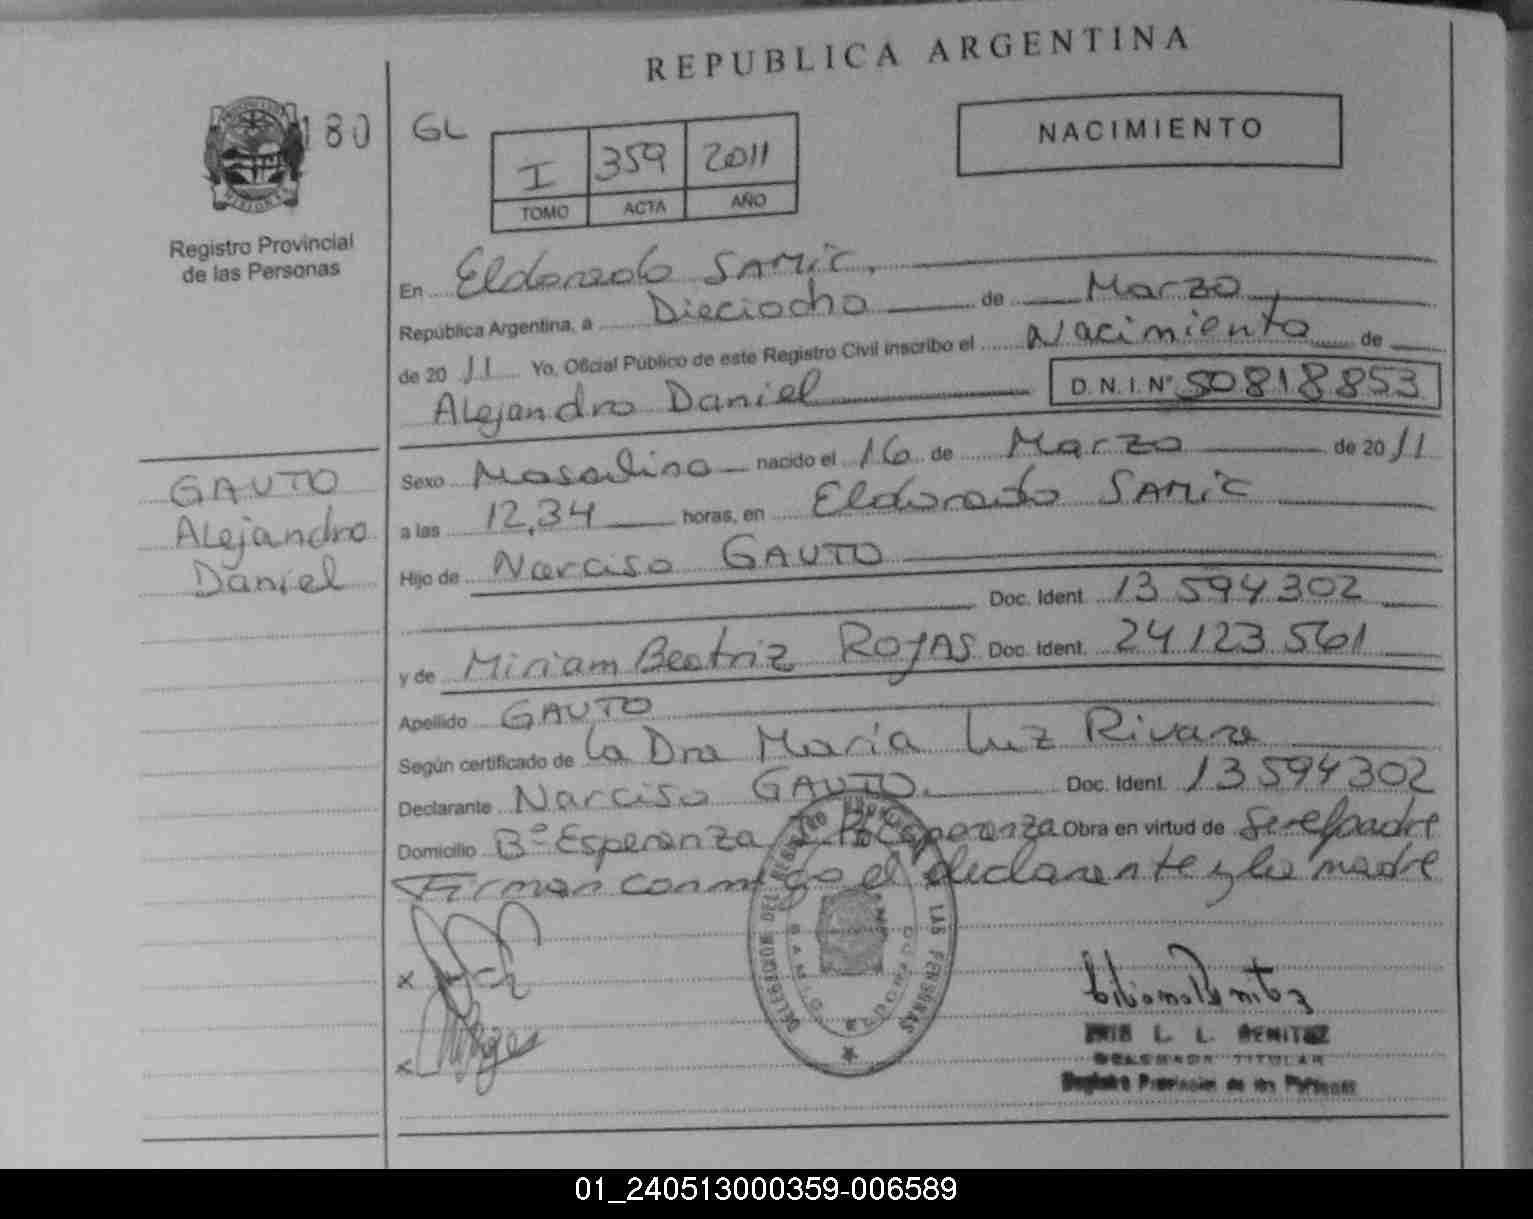 REPUBLICA ARGENTINA
180
GL
NACIMIENTO
I 359 2011
TOMO ACTA AÑO
MISIONES
Registro Provincial
de las Personas
En Eldorado SAMIC.
República Argentina, a Dieciocho de Marzo
de 2011 Yo, Oficial Público de este Registro Civil inscribo el Nacimiento de
Alejandro Daniel D.N.I. Nº 50818853
GAUTO
Alejandro
Daniel
Sexo Masculino nacido el 16 de Marzo de 2011
a las 12,34 horas, en Eldorado SAMIC
Hijo de Narciso GAUTO
Doc. Ident. 13 594 302
y de Miriam Beatriz ROJAS Doc. Ident. 24 123 561
Apellido GAUTO
Según certificado de La Dra Maria Luz
Declarante Narciso GAUTO. Doc. Ident. 13594302
Domicilio Bº Esperanza Esperanza Obra en virtud de Ser el padre
Firman conmigo el declarante y la madre
DELEGACION DEL REGISTRO LAS PERSONAS
SAMIC ELDORADO
x
x
L. L. BENITEZ
DELEGADA TITULAR
Registro Provincial de las Personas
01_240513000359-006589